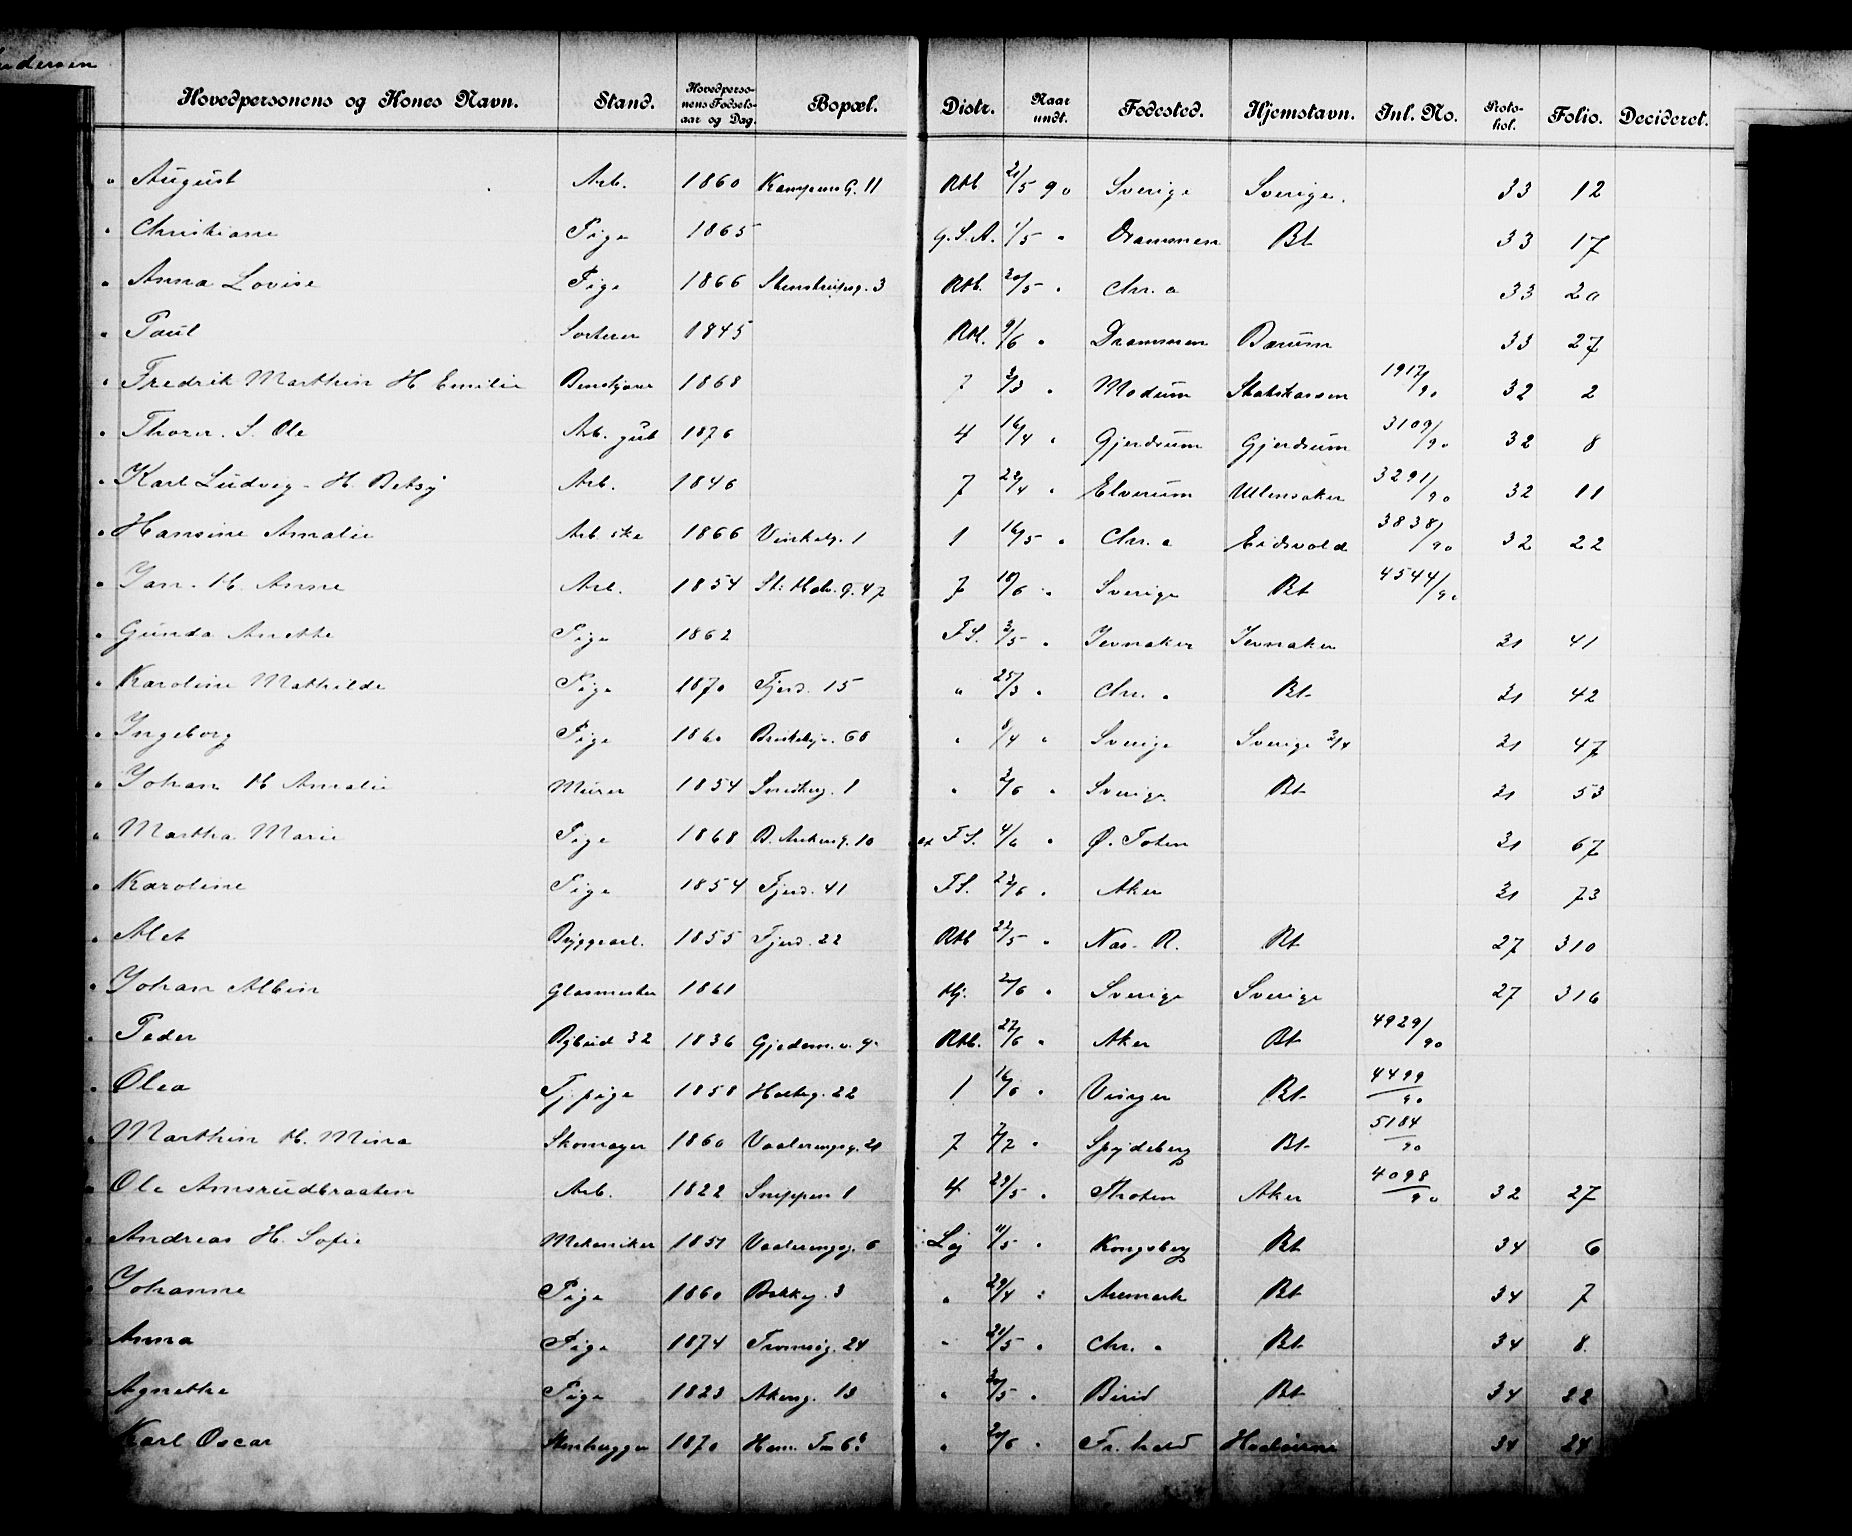 Andersen
Hovedpersonens og Kones Navn. Stand. Hovedperso-nens Fødsels-aar og Dag. Bopæl. Distr. Naar undt. Fødested. Hjemstavn. Inl. No. Proto-kol. Folio. Decideret.
" August Arb. 1860 Kampens G. 11 Rtb 21/5 90 Sverige Sverige. 33 12
" Christiane Pige 1865 G.S.A. 1/5 " Drammen Bt 33 17
" Anna Lovise Pige 1866 Stenstrupsg. 3 Rtb. 20/5 " Chr. a 33 20
" Paul Sorterer 1845 Rtb. 9/6 " Drammen Bærum 33 27
" Fredrik Marthin H Emilie 1868 7 3/3 " Modum Statskassen 1917/90 32 2
" Thorer. S. Ole Arb. gut 1876 4 16/4 " Gjerdrum Gjerdrum 3109/90 32 8
" Karl Ludvig - H. Betsy Arb. 1846 7 22/4 " Elverum Ullensaker 3291/90 32 11
" Hansine Amalie Arb ske 1866 Vinkelg. 1 1 16/5 " Chr. a Eidsvold 3838/90 32 22
" Jan. H. Anne Arb. 1854 St: Halv. g. 47 7 10/6 " Sverige Bt 4544/90
" Gunda Anette Pige 1862 F S. 3/5 " Jevnaker Jevnaker 31 41
" Karoline Mathilde Pige 1870 Fjerd. 15 " 25/3 " Chr. a Bt 31 42
" Ingeborg Pige 1860 66 " 8/4 " Sverige Sverige 31 47
" Johan H Amalie Murer 1854 Smedbg. 1 " 3/6 " Sverige Bt 31 53
" Martha Marie Pige 1868 10 F S. 4/6 " Ø. Toten 31 67
" Karoline Pige 1854 Fjerd. 41 F S. 23/6 " Aker 31 73
" Alet Byggearb. 1855 Fjerd. 22 Rtb 22/5 " Nas. R. Bt 27 310
" Johan Albin Glasmester 1861 Hj. 20/6 " Sverige Sverige 27 316
" Peder Bybud 32 1836 Gjedem. v. 9 Rtb. 27/6 " Aker Bt 4929/90
" Olea Tj. pige 1858 Holteg. 22 1 16/6 " Vinger Bt 4499/90
" Marthin H. Mina Skomager 1860 Vaalerengsg. 21 7 7/7 " Spydeberg Bt 5184/90
" Ole Amsrudbraaten Arb. 1822 Snippen 1 4 29/5 " Thoten Aker 4098/90 32 27
Andreas H. Sofie Mekaniker 1851 Vaalerengsg. 6 Lej 11/5 " Kongsberg Bt 34 6
Johanne Pige 1860 Bakkeg. 3 " 29/4 " Aremark Bt 34 7
Anna Pige 1874 Tromsög. 24 " 21/5 " Chr. a Bt 34 8
Agnethe Pige 1823 Akersg. 13 " 30/5 " Birid Bt 34 22
Karl Oscar Stenhugger 1870 " 20/6 " Fr. hald 34 24